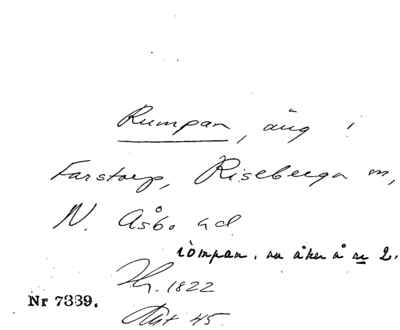 Rumpan, äng i
Farstorp, Riseberga sn,
N. Åsbo hd
rompan. nu åker å nr 2.
1822
Nr 7339.
Akt 45.